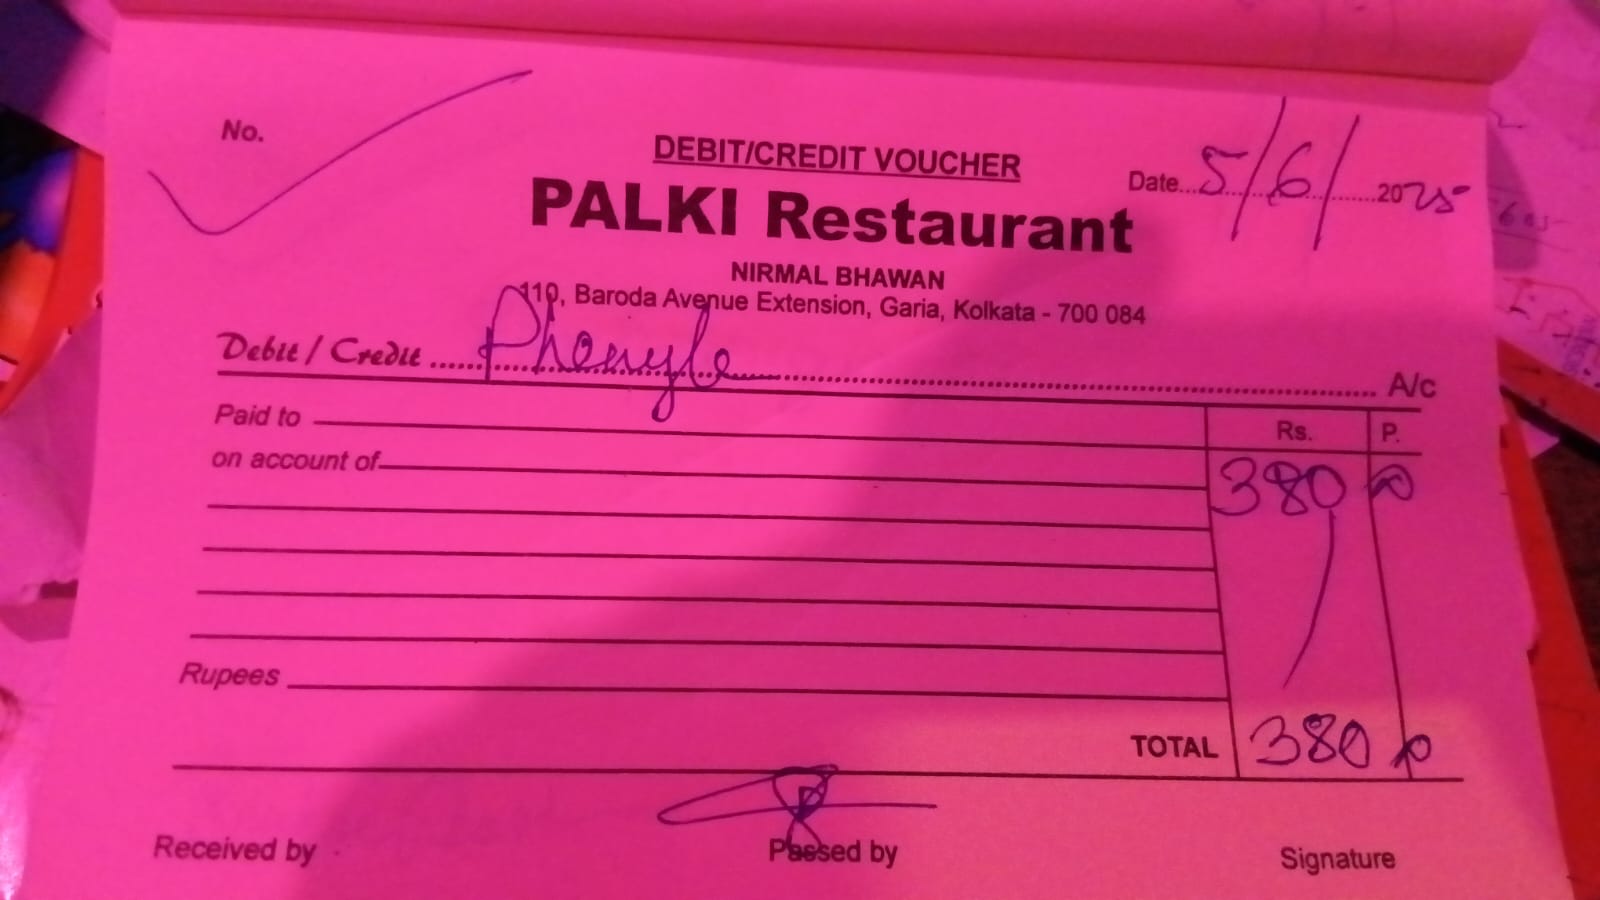 No.
DEBIT/CREDIT VOUCHER
Date...5/6/......2025
PALKI Restaurant
NIRMAL BHAWAN
110, Baroda Avenue Extension, Garia, Kolkata - 700 084
Debit / Credit ..... Phenyle ..... A/c
Paid to
Rs. P.
on account of
380
Rupees
TOTAL 380
Received by
Passed by
Signature